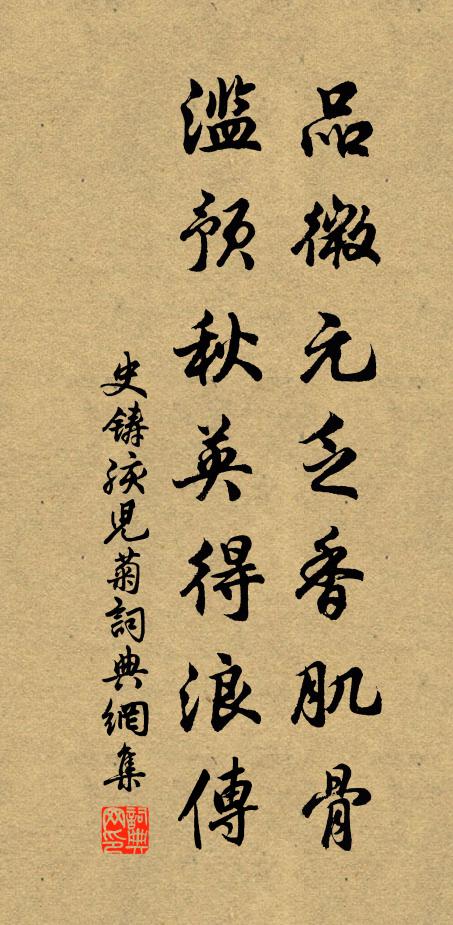 品微元乏香肌骨
濫預秋英得浪傳
史鑄孩兒菊詞典網集
詞典网印